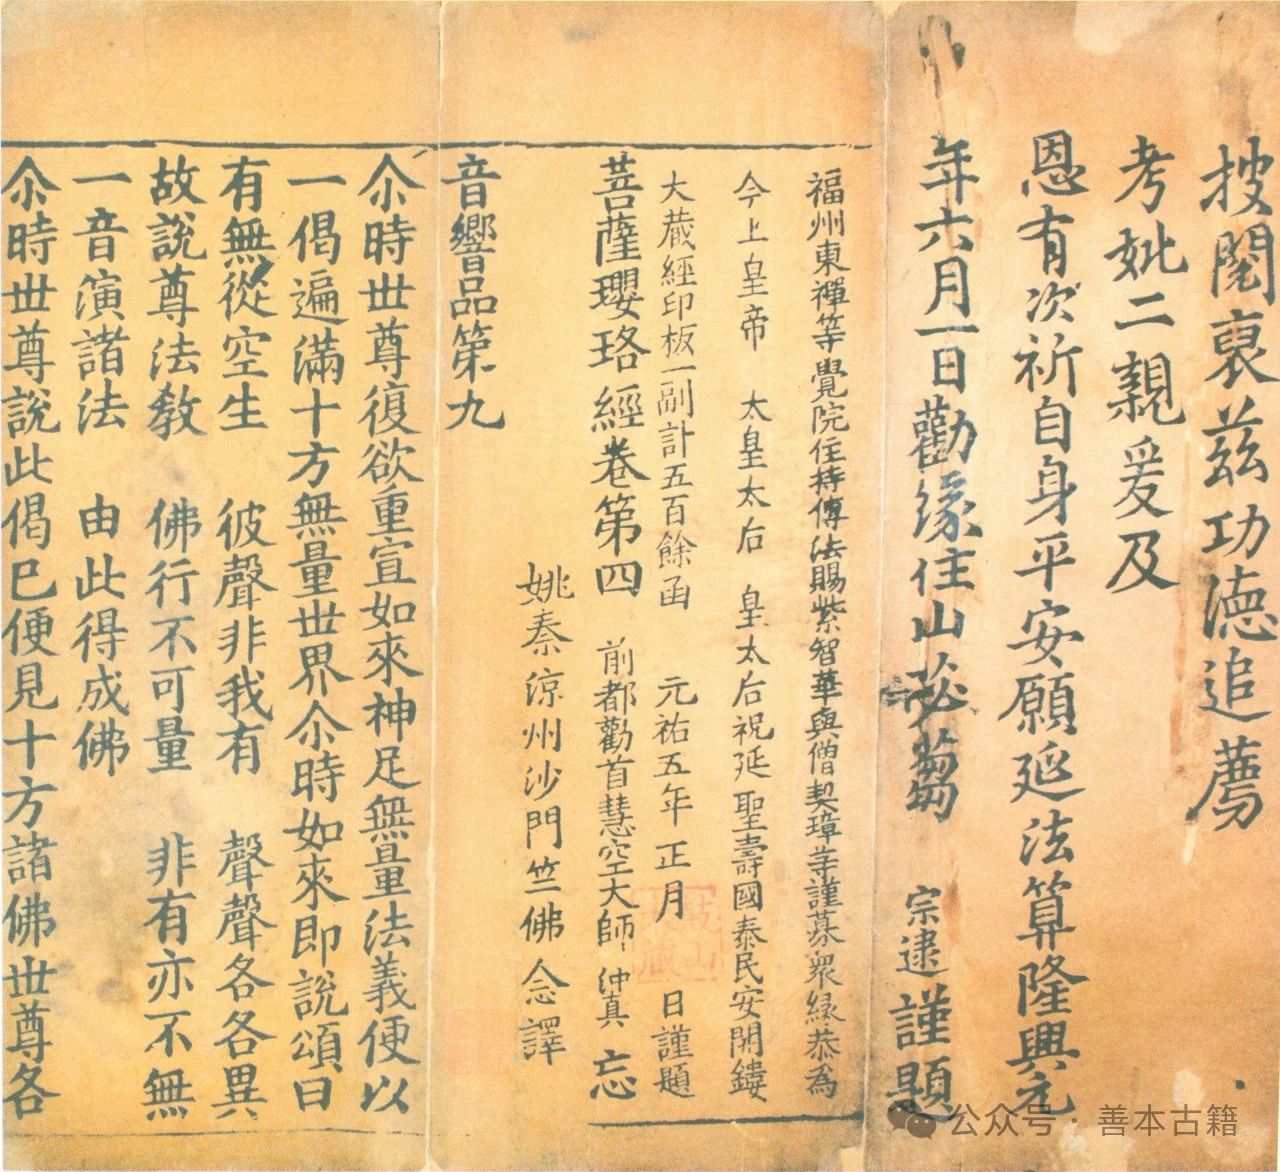 披閱裒兹功德追薦
考妣二親爰及
恩有次祈自身平安願延法算隆興元
年六月一日勸緣住山苾蒭 宗逮謹題
福州東禪等覺院住持傳法賜紫智華與僧契璋等謹募衆緣恭爲
今上皇帝 太皇太后 皇太后祝延聖壽國泰民安開鏤
大藏經印板一副計五百餘函 元祐五年正月 日謹題
菩薩瓔珞經卷第四 前都勸首慧空大師 沖真 忘
姚秦涼州沙門竺佛念譯
音響品第九
尒時世尊復欲重宣如來神足無量法義便以
一偈遍滿十方無量世界尒時如來即說頌曰
有無從空生 彼聲非我有 聲聲各各異
故說尊法教 佛行不可量 非有亦不無
一音演諸法 由此得成佛
尒時世尊說此偈已便見十方諸佛世尊各
鼓山大藏
公众号·善本古籍